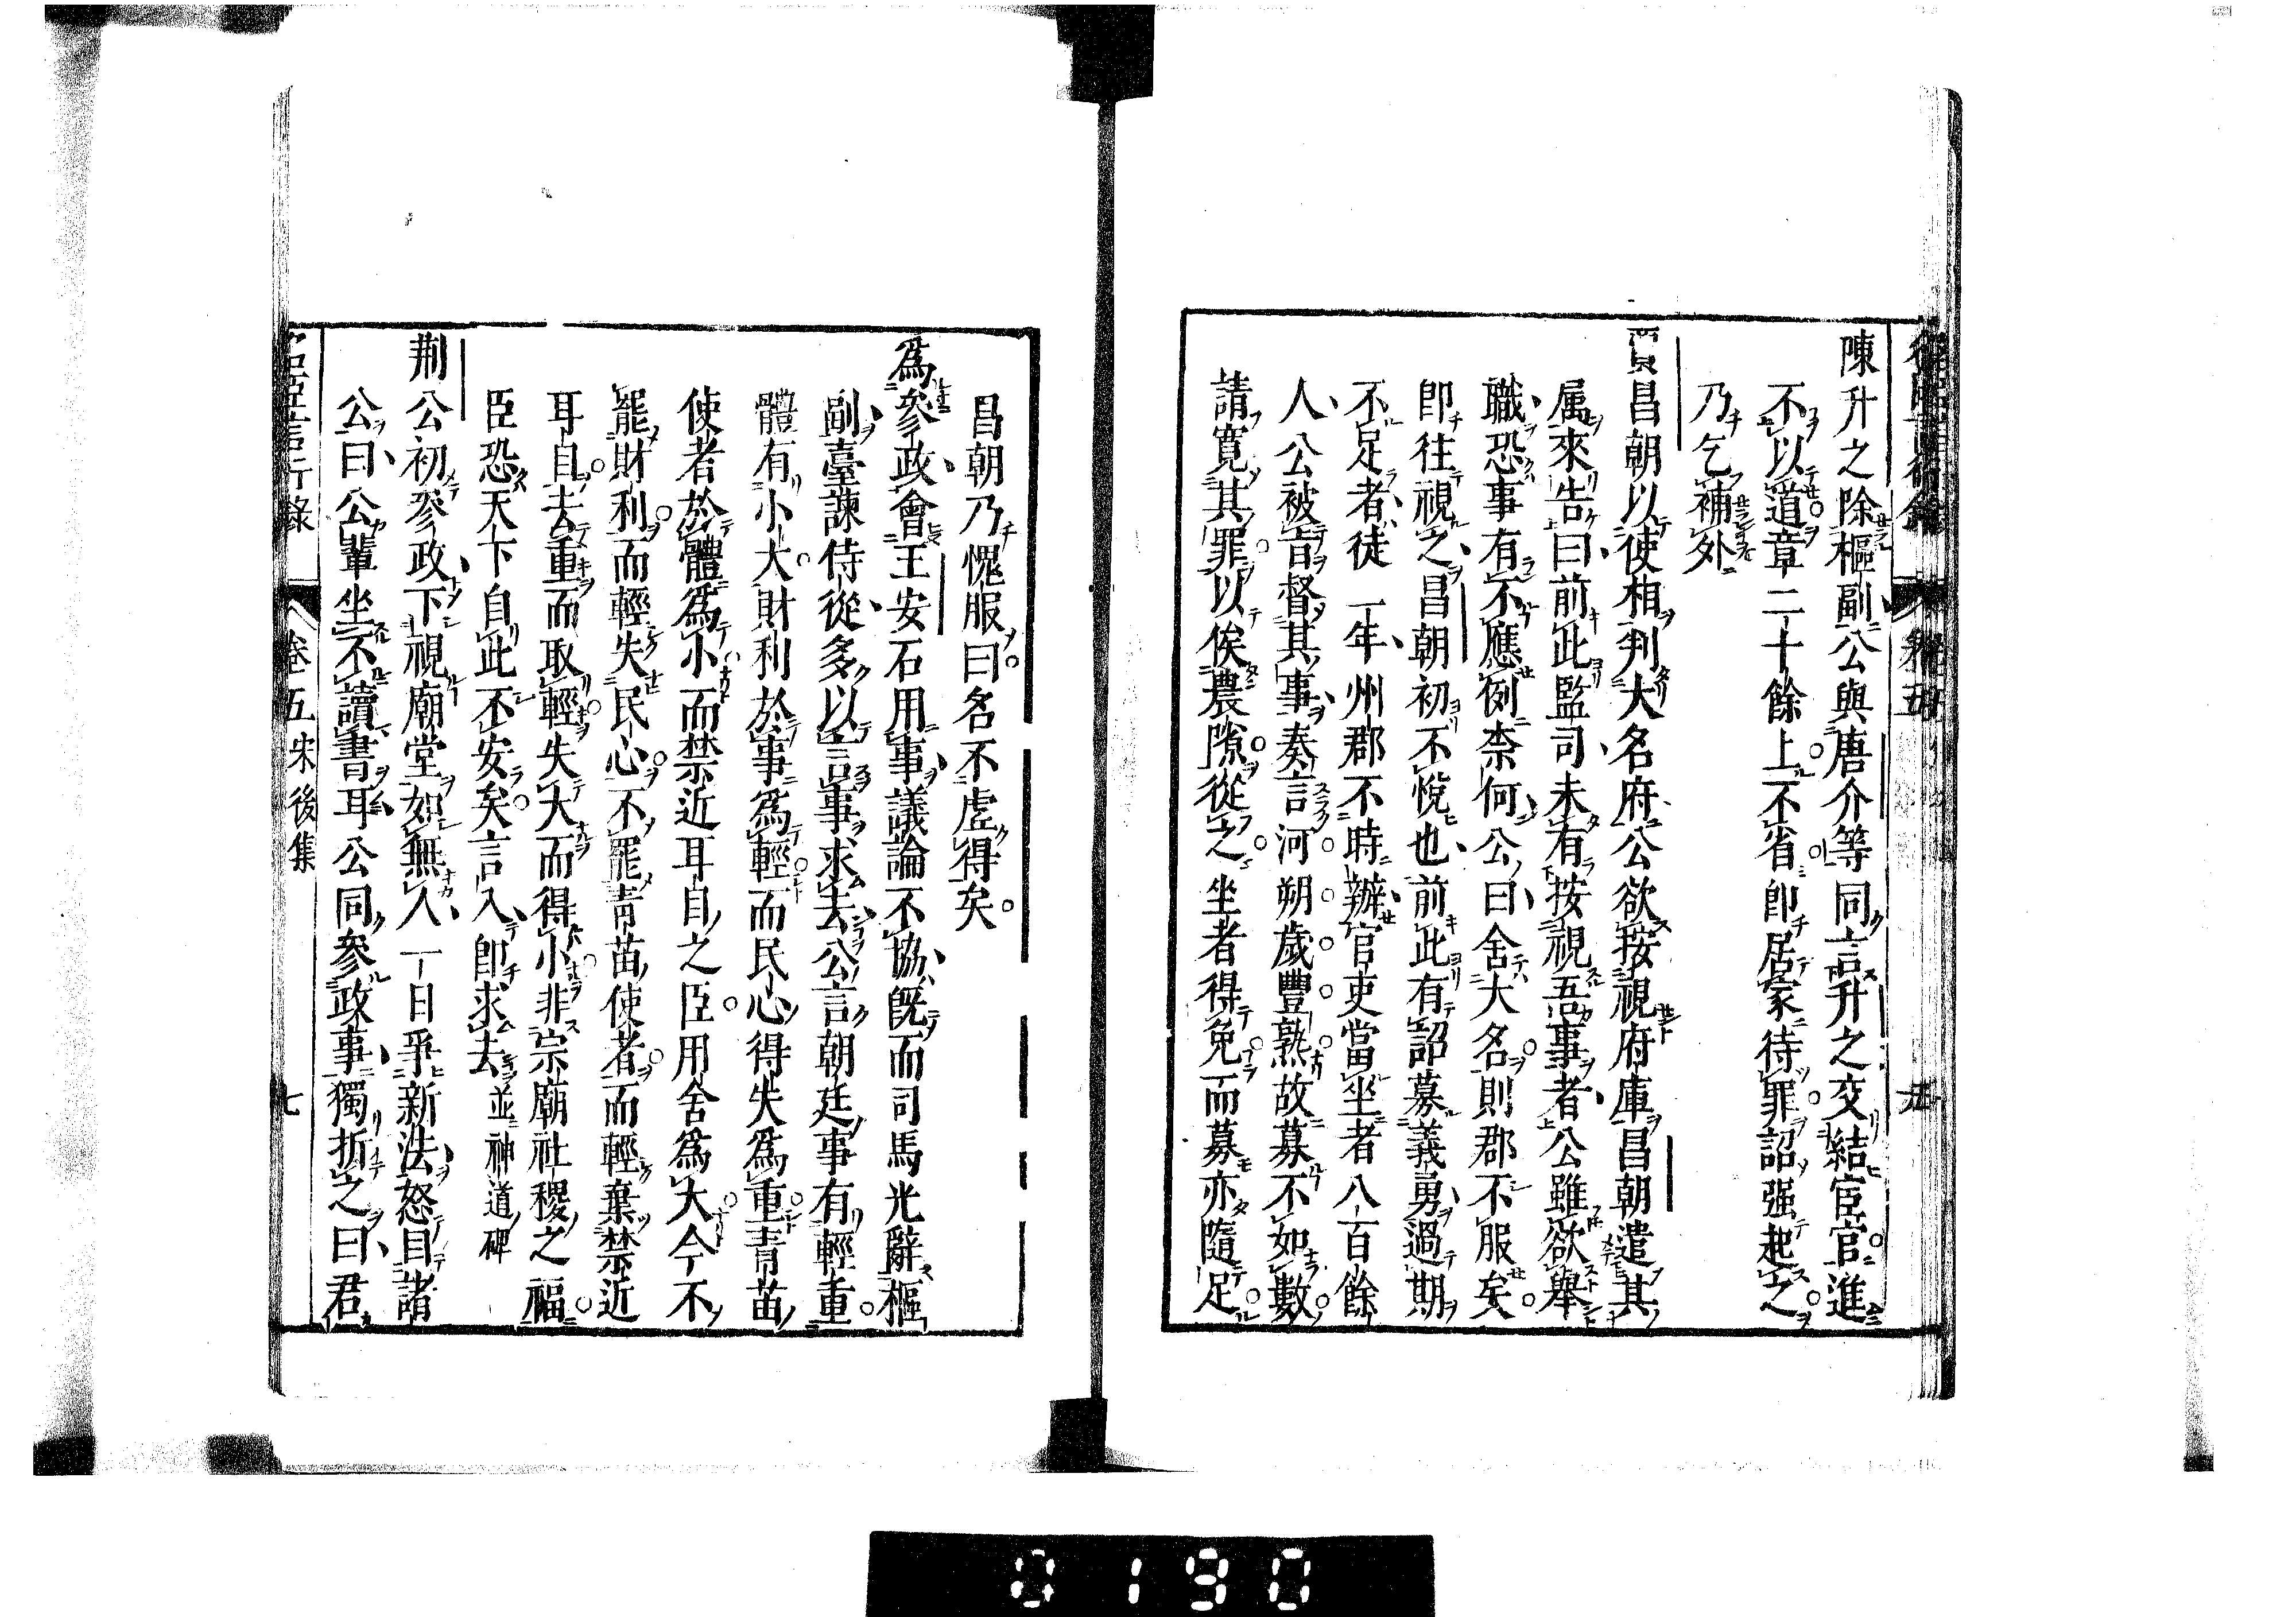 陳升之除樞副公與唐介等同言升之交結宦官進
不以道章二十餘上不省卽居家待罪詔强起之
乃乞補外
賈昌朝以使相判大名府公欲按視府庫昌朝遣其
属來告曰前此監司未有按視吾事者公雖欲舉
職恐事有不應例柰何公曰舍大名則郡不服矣
卽往視之昌朝初不悅也前此有詔募義勇過期
不足者徒一年州郡不時辦官吏當坐者八百餘
人公被旨督其事奏言河朔歲豐熟故募不如數
請寛其罪以俟農隙從之坐者得免而募亦隨足
昌朝乃愧服曰名不虛得矣
爲參政會王安石用事議論不協旣而司馬光辭樞
副臺諫侍從多以言事求去公言朝廷事有輕重
體有小大財利於事爲輕而民心得失爲重青苗
使者於體爲小而禁近耳目之臣用舍爲大今不
罷財利而輕失民心不罷青苗使者而輕棄禁近
耳目去重而取輕失大而得小非宗廟社稷之福
臣恐天下自此不安矣言入卽求去並神道碑
荆公初參政下視廟堂如無人一日爭新法怒目諸
公曰公輩坐不讀書耳公同參政事獨折之曰君
名臣言行錄 卷五 宋後集 七
0190